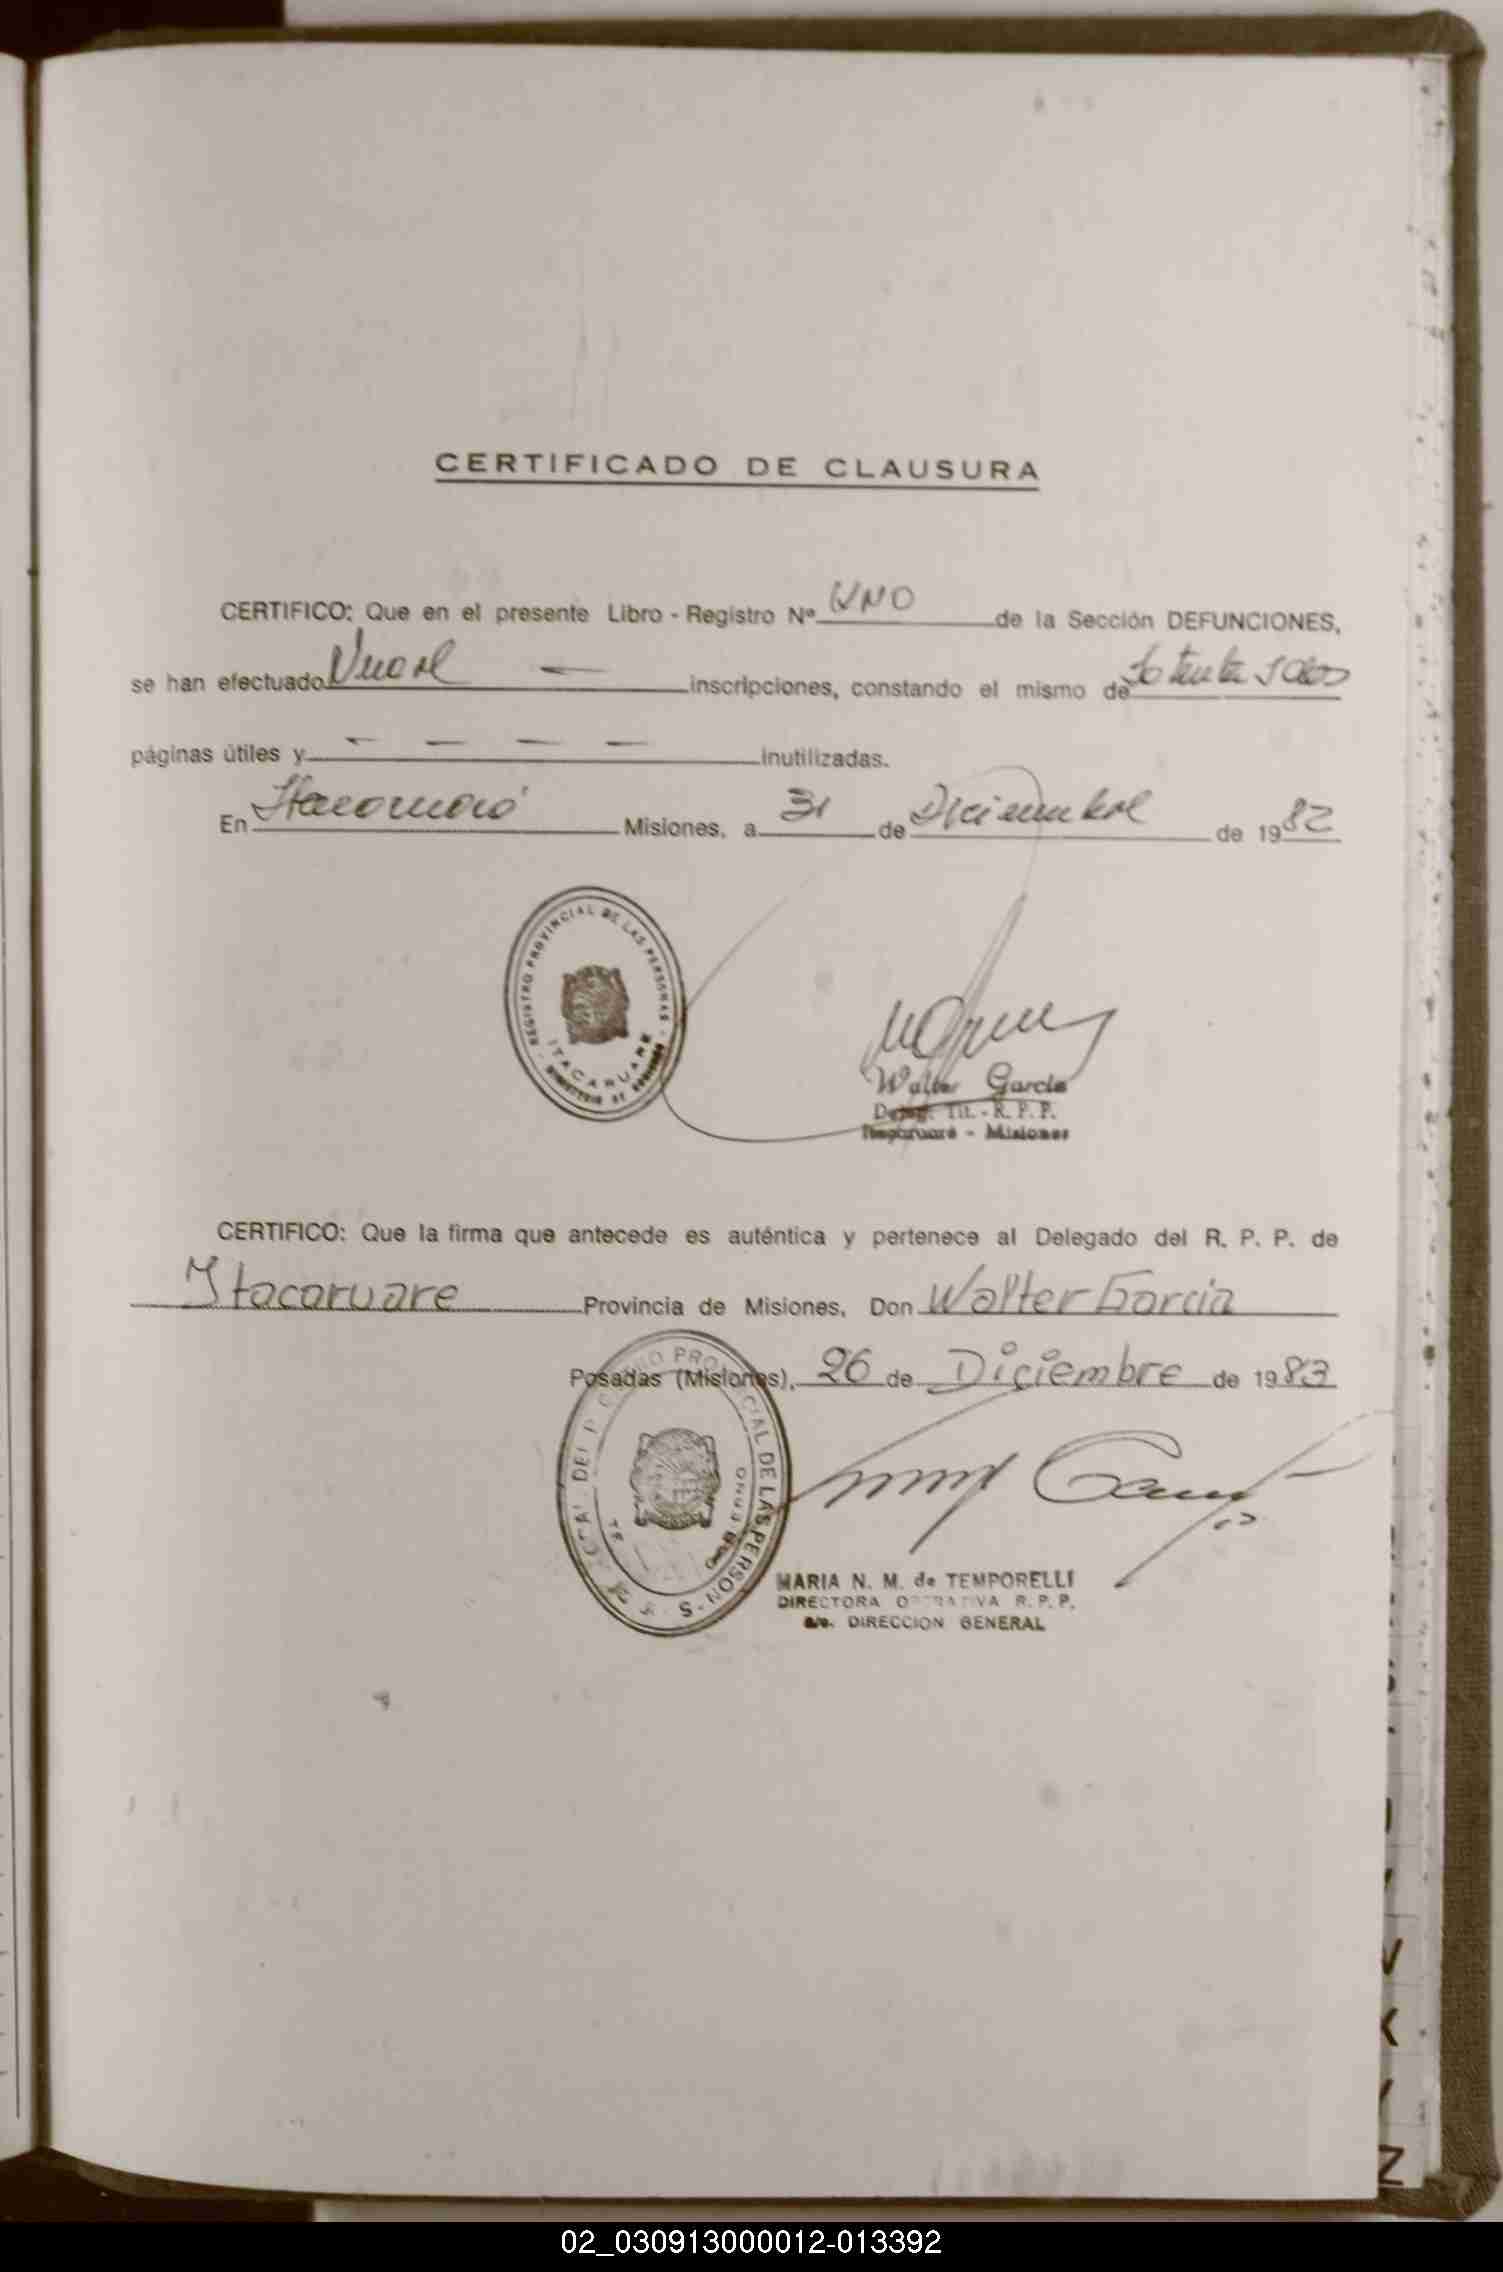 CERTIFICADO DE CLAUSURA
CERTIFICO: Que en el presente Libro - Registro Nº UNO de la Sección DEFUNCIONES,
se han efectuado Nueve — inscripciones, constando el mismo de
páginas útiles y — — — — inutilizadas.
En Itacaruaré Misiones, a 31 de Diciembre de 1982
REGISTRO PROVINCIAL DE LAS PERSONAS
ITACARUARE
MINISTERIO DE GOBIERNO
Walter García
Deleg. Tit. - R. P. P.
Itacaruaré - Misiones
CERTIFICO: Que la firma que antecede es auténtica y pertenece al Delegado del R. P. P. de
Itacaruare Provincia de Misiones, Don Walter Garcia
Posadas (Misiones), 26 de Diciembre de 1983
PROVINCIAL DE LAS PERSON S
MARIA N. M. de TEMPORELLI
DIRECTORA OPERATIVA R. P. P.
a/c. DIRECCION GENERAL
V
X
Y
Z
02_030913000012-013392